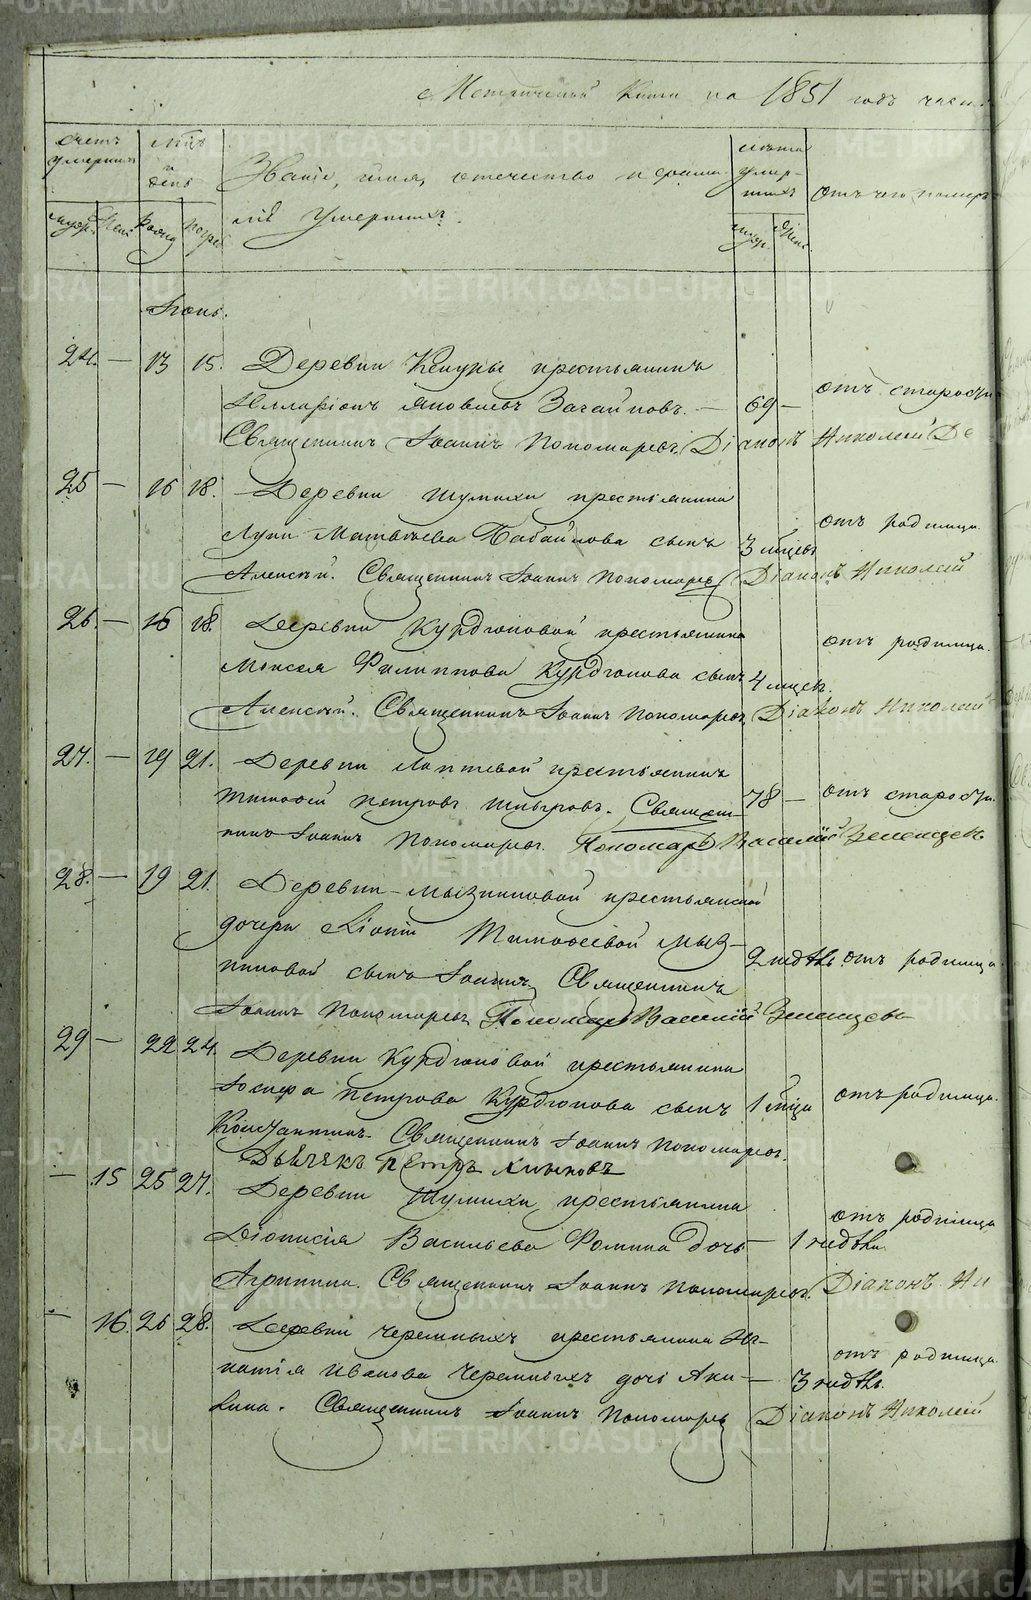 Метрической Книги на 1851 годъ част
счетъ умершихъ
мцъ и день
Званіе, имя, отечество и фами-
лія умершихъ.
лѣта умер-
шихъ
отъ чего померъ
муж. жен.
муж. жен.
Іюнь.
24. — 13 15. Деревни Кекуры крестьянинъ
Илларіонъ Яковлевъ Загайновъ. — 69 — отъ старости
Священникъ Іоаннъ Пономаревъ. Діаконъ Николай
25 — 16 18. Деревни Шумихи крестьянина
Луки Матвѣева сынъ 3 мцевъ отъ родимца
Алексѣй. Священникъ Іоаннъ Пономаревъ Діаконъ Николай
26. — 16 18. Деревни Курдюковой крестьянина
Моисея Филиппова Курдюкова сынъ 4 мцевъ. отъ родимца.
Алексѣй. Священникъ Іоаннъ Пономаревъ Діаконъ Николай
27. — 19 21. Деревни Лаптевой крестьянинъ
Тимофей Петровъ Шныровъ. Священ- 78 — отъ старости.
никъ Іоаннъ Пономаревъ. Пономарь Василій Зеленцевъ
28. — 19 21. Деревни Мызниковой крестьянской
дочери Тимофеевой Мыз-
никовой сынъ Іоаннъ. Священникъ 2 недѣль. отъ родимца
Іоаннъ Пономаревъ Пономарь Василій Зеленцевъ
29 — 22 24. Деревни Курдюковой крестьянина
Іосифа Петрова Курдюкова сынъ 1 мца отъ родимца.
Константинъ. Священникъ Іоаннъ Пономаревъ.
Дьячекъ Петръ
— 15 25 27. Деревни Шумихи крестьянина
Діонисія Васильева Фомина дочь — 1 недѣли. отъ родимца
Агрипина. Священникъ Іоаннъ Пономаревъ. Діаконъ Ни
— 16. 26 28. Деревни Черемныхъ крестьянина Иг-
натія Иванова Черемныхъ дочь Аки- — 3 недѣль. отъ родимца
лина. Священникъ Іоаннъ Пономаревъ Діаконъ Николай
METRIKI.GASO-URAL.RU